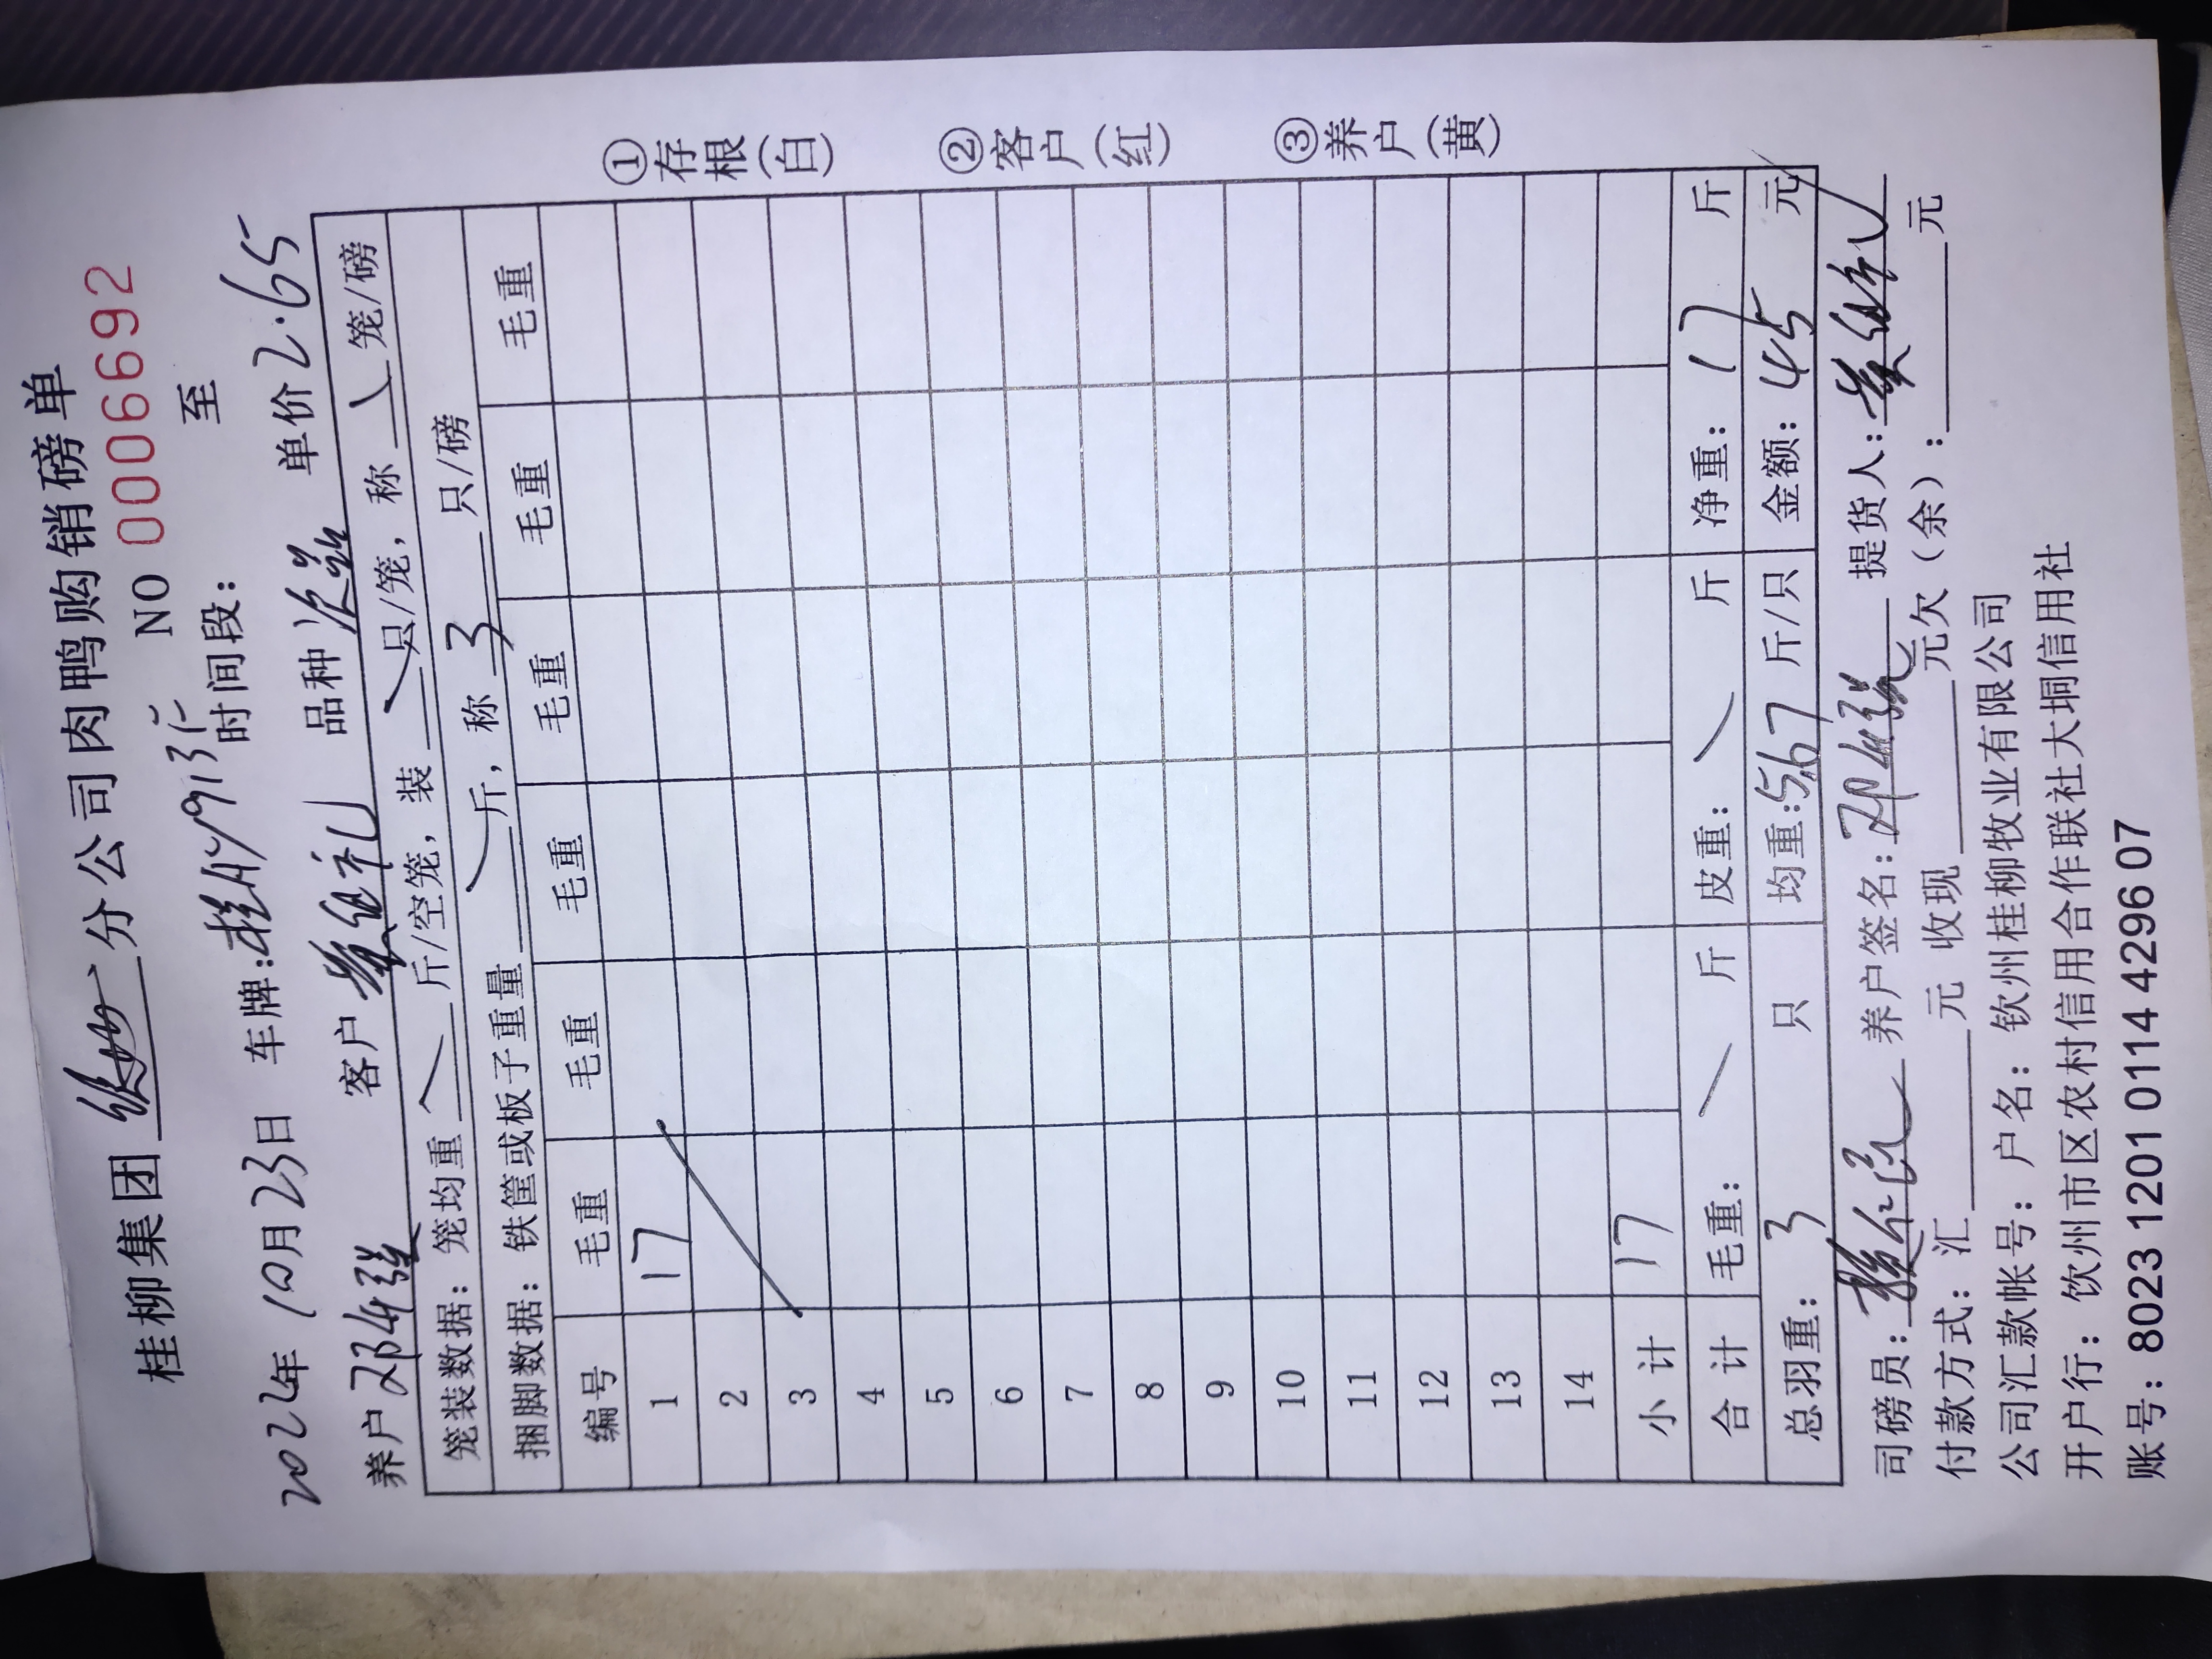 桂柳集团 钦州 分公司肉鸭购销磅单
NO 0006692
2022年10月23日 车牌: 时间段: 至
养户 邓 强 客户 黄祖礼 品种 次品 单价 2.65
笼装数据: 笼均重 / 斤/空笼, 装 / 只/笼, 称 / 笼/磅
捆脚数据: 铁筐或板子重量 / 斤, 称 3 只/磅
编号 毛重 毛重 毛重 毛重 毛重 毛重
1 17
2
3
4
5
6
7
8
9
10
11
12
13
14
小计 17
合计 毛重: / 斤 皮重: / 斤 净重: 17 斤
总羽重: 3 只 均重: 5.67 斤/只 金额: 45 元
司磅员: 养户签名: 提货人:
付款方式: 汇 元 收现 元欠(余): 元
公司汇款帐号: 户名: 钦州桂柳牧业有限公司
开户行: 饮州市区农村信用合作联社大垌信用社
账号: 8023 1201 0114 4296 07
①存根(白)
②客户(红)
③养户(黄)